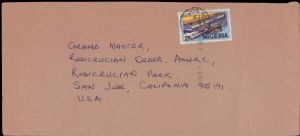 25k
NIGERIA
GRAND MASTER,
ROSICRUCIAN ORDER, AMORC,
ROSICRUCIAN PARK.
SAN JOSE, CALIFONIA 95191.
U.S.A.